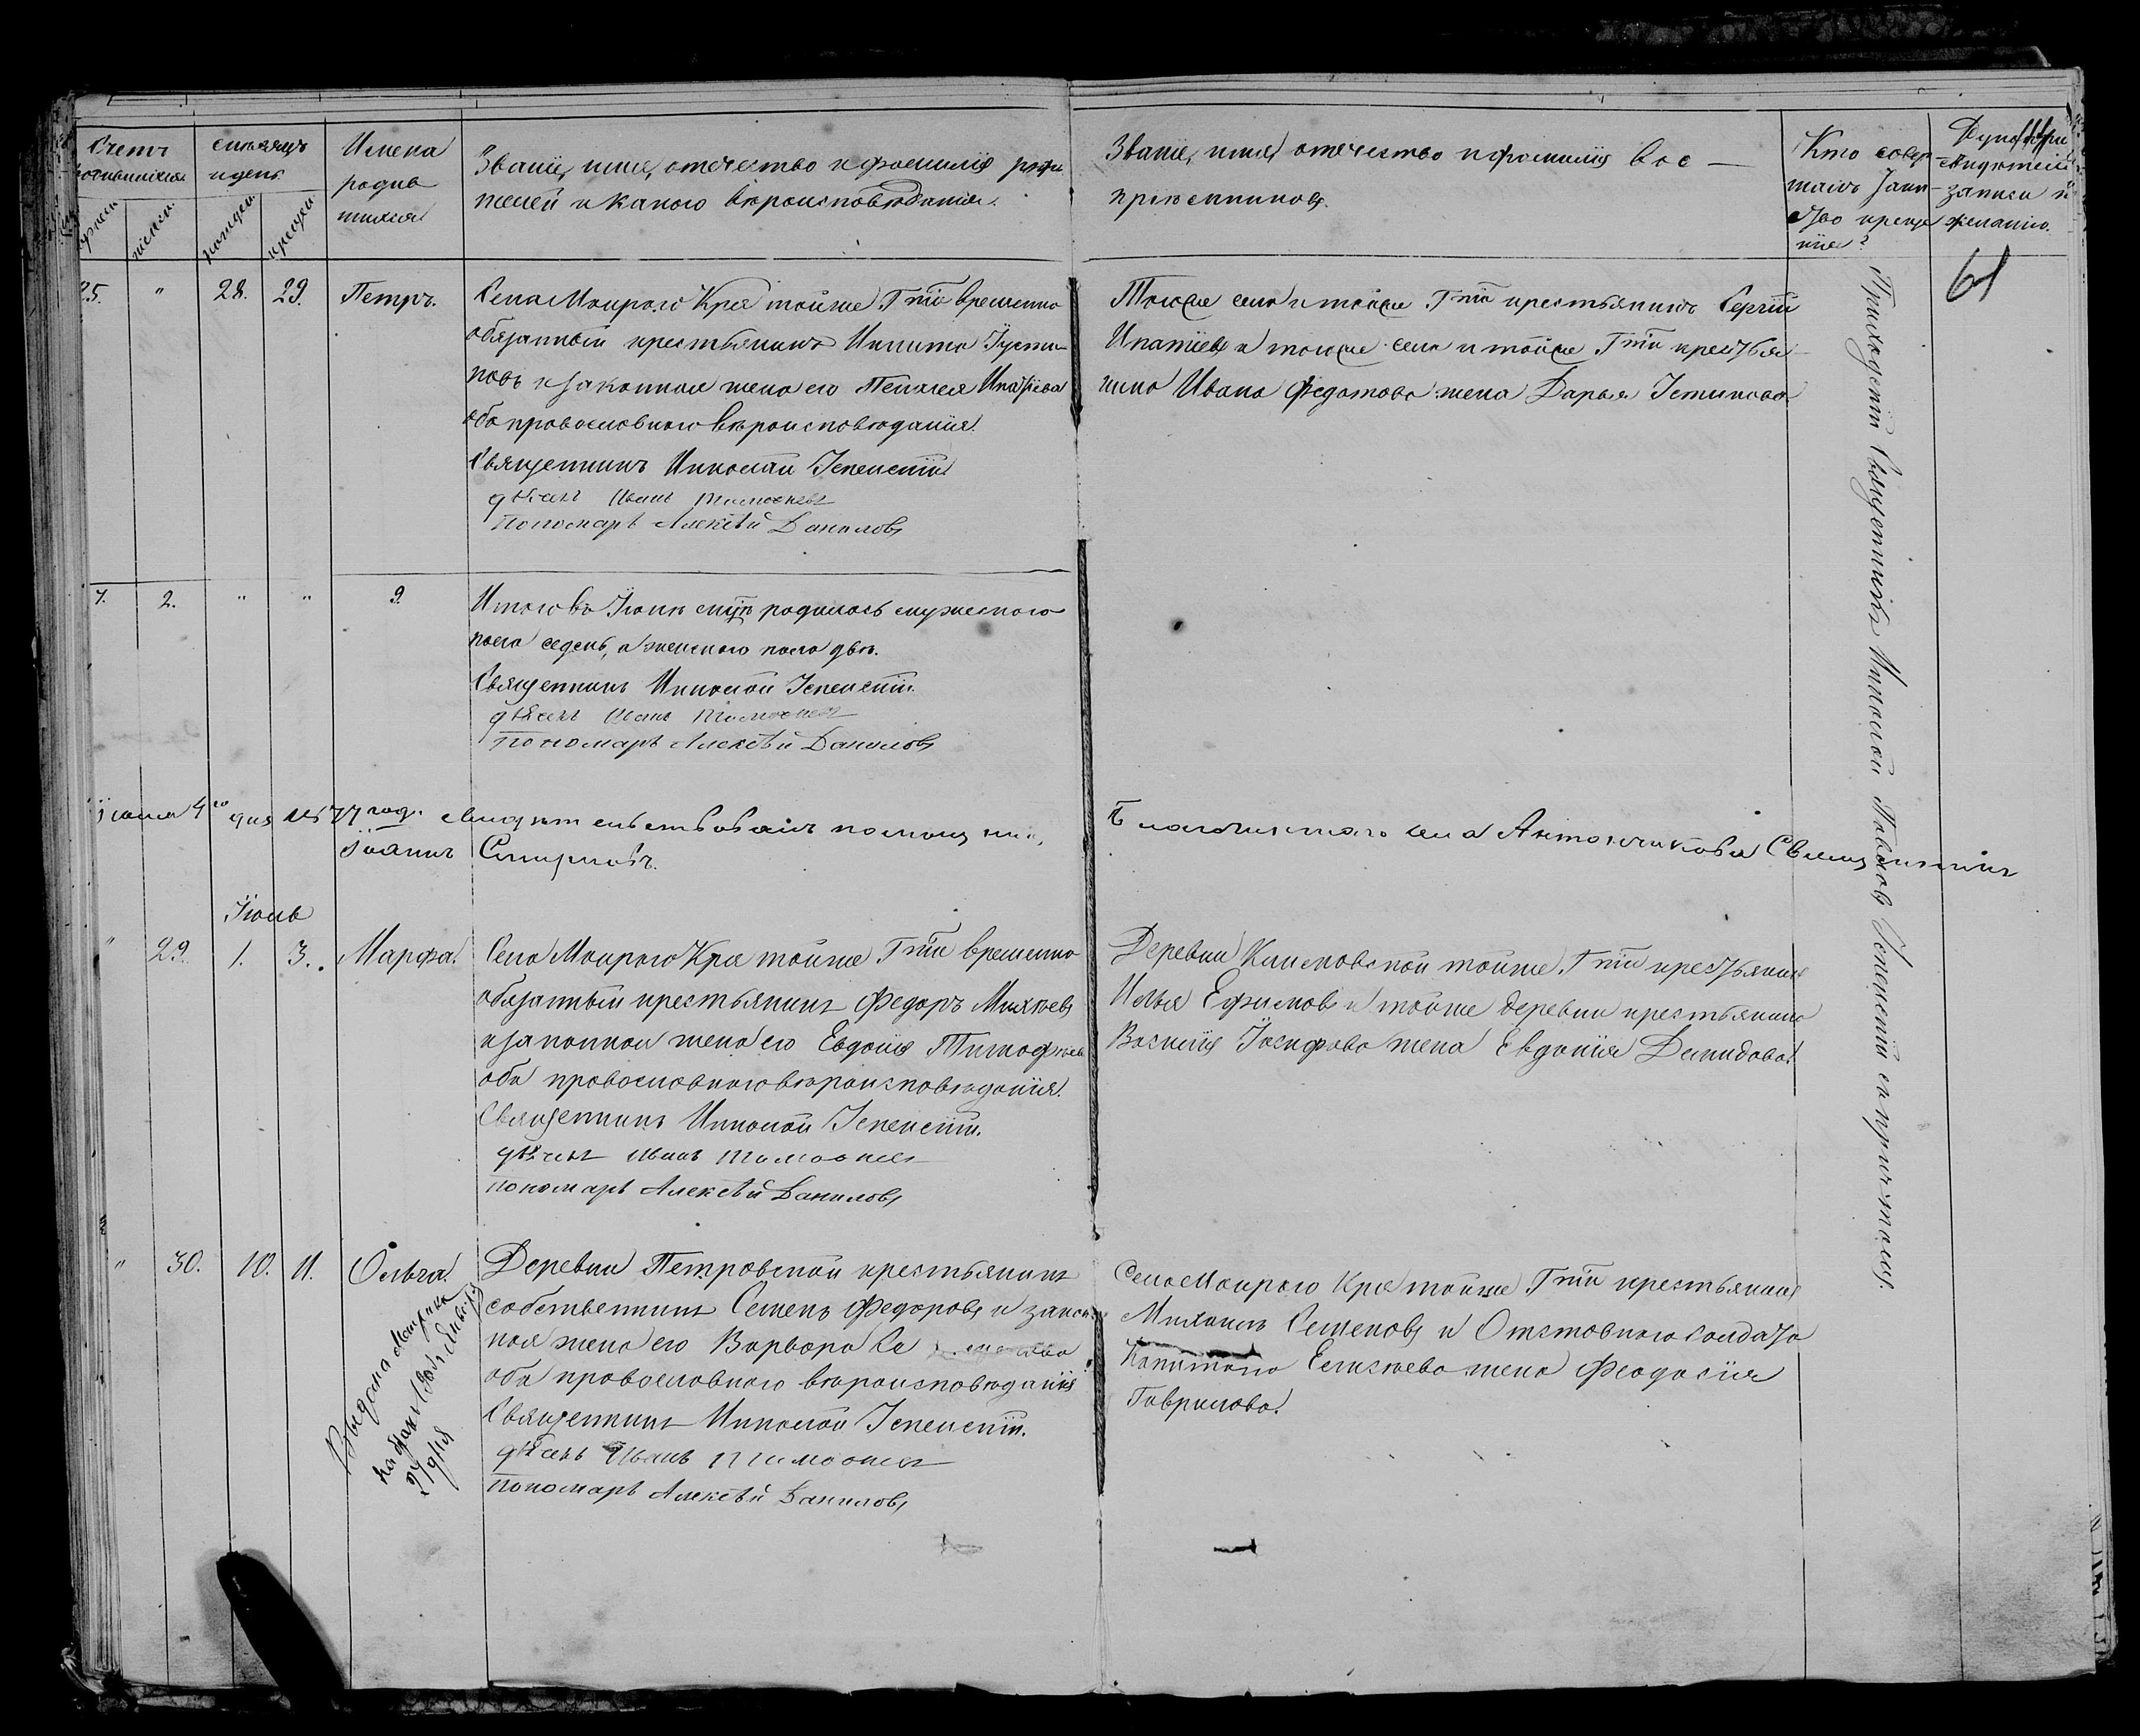 Счетъ родившихся
мужеска
женска
месяцъ и день
рожден
крещен
Имена родив
шихся
Званіе, имя, отечество и фамилія роди
телей и какого вѣроисповѣданія.
Званіе, имя, отечество и фамилія вос —
пріемниковъ.
Кто совер
шалъ таин
ство креще
нія?
записи по
желанію.
61
25. " 28. 29. Петръ.
Села Мокраго Края той же Г-жи временно
обязанный крестьянинъ Никита Іусти
новъ и законная жена его Пелагея Ипатіева
оба православнаго вѣроисповѣданія.
Священникъ Николай Успенскій
дьячекъ Иванъ
Пономарь Алексѣй Даниловъ
Того же села и той же Г-жи крестьянинъ Сергій
Ипатіевъ и того же села и той же Г-жи крестья
нина Ивана Федотова жена Дарья Устинова
7. 2. " " 9.
Итого въ Іюнѣ м-цѣ родилось мужескаго
пола седмь, а женскаго пола двѣ.
Священникъ Николай Успенскій.
дьячекъ Иванъ
Пономарь Алексѣй Даниловъ
4го дня год. свидѣтельствовалъ помощник
Благочиннаго села Священникъ
Іоаннъ Смирновъ.
Іюль
" 29. 1. 3. Марфа.
Села Мокраго Края той же Г-жи временно
обязанный крестьянинъ Федоръ Михѣевъ
и законная жена его Евдокія Тимофѣева
оба православнаго вѣроисповѣданія.
Священникъ Николай Успенскій.
дьячекъ Иванъ
Пономарь Алексѣй Даниловъ
Деревни той же Г-жи крестьянинъ
Илья Ефимовъ и той же деревни крестьянина
Василія Іосифова жена Евдокія Демидова.
" 30. 10. 11. Ольга.
Деревни Петровской крестьянинъ
собственникъ Семенъ Федоровъ и закон
ная жена его Варвара
оба православнаго вѣроисповѣданія
Священникъ Николай Успенскій.
дьячекъ Иванъ
Пономарь Алексѣй Даниловъ
Села Мокраго Края той же Г-жи крестьянинъ
Михаилъ Семеновъ и Отставного солдата
Капитона Елисѣева жена Феодосія
Гаврилова.
Выдана метрика
на бракъ
27 дня
Приходскій Священникъ Николай Павловъ Успенскій съ причтомъ.